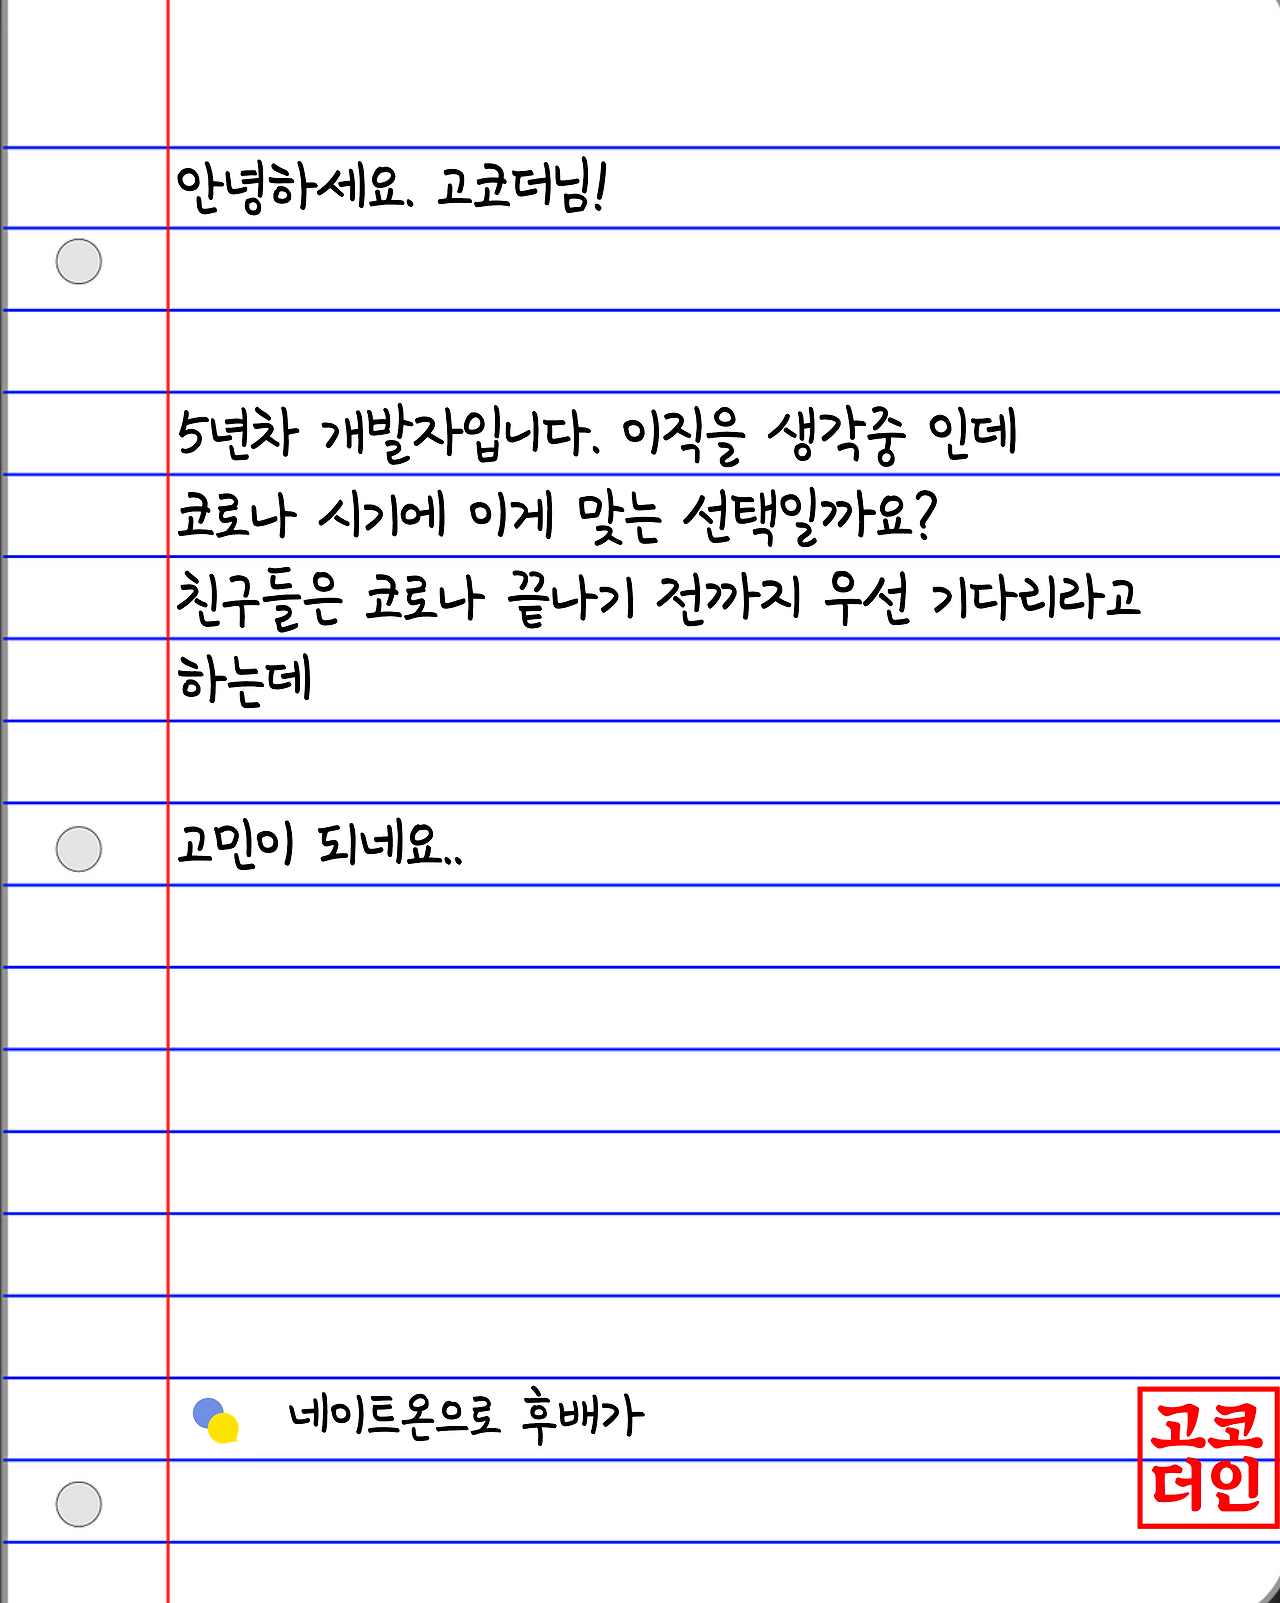 안녕하세요. 고코더님!
5년차 개발자입니다. 이직을 생각중 인데
코로나 시기에 이게 맞는 선택일까요?
친구들은 코로나 끝나기 전까지 우선 기다리라고
하는데
고민이 되네요..
네이트온으로 후배가
고코
더인